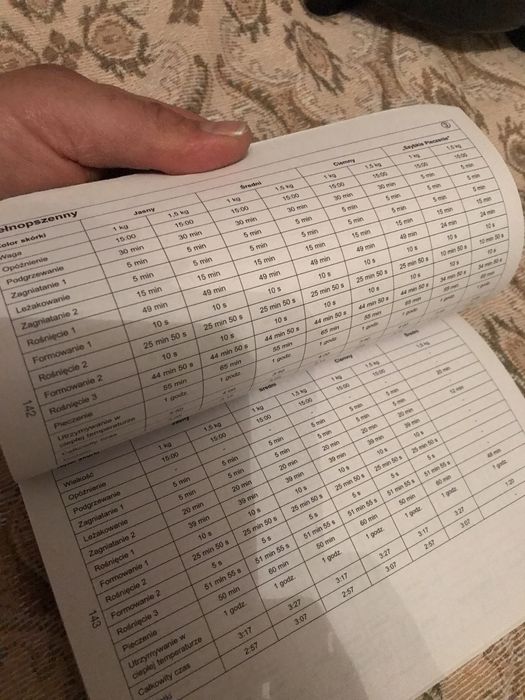 łnopszenny
Kolor skórki Jasny Średni Ciemny „Szybkie Pieczenie”
Waga 1 kg 1,5 kg 1 kg 1,5 kg 1 kg 1,5 kg 1 kg 1,5 kg
Opóźnienie 15:00 15:00 15:00 15:00 15:00 15:00 15:00 15:00
Podgrzewanie 30 min 30 min 30 min 30 min 30 min 30 min 5 min 5 min
Zagniatanie 1 5 min 5 min 5 min 5 min 5 min 5 min 5 min 5 min
Leżakowanie 5 min 5 min 5 min 5 min 5 min 5 min 5 min 5 min
Zagniatanie 2 15 min 15 min 15 min 15 min 15 min 15 min 15 min 15 min
Rośnięcie 1 49 min 49 min 49 min 49 min 49 min 49 min 24 min 24 min
Formowanie 1 10 s 10 s 10 s 10 s 10 s 10 s 10 s 10 s
Rośnięcie 2 25 min 50 s 25 min 50 s 25 min 50 s 25 min 50 s 25 min 50 s 25 min 50 s 10 min 50 s 10 min 50 s
Formowanie 2 10 s 10 s 10 s 10 s 10 s 10 s 10 s 10 s
Rośnięcie 3 44 min 50 s 44 min 50 s 44 min 50 s 44 min 50 s 44 min 50 s 44 min 50 s 34 min 50 s 34 min 50 s
Pieczenie 55 min 65 min 55 min 65 min 55 min 65 min
Utrzymywanie w
cieplej temperaturze 1 godz. 1 godz. 1 godz.
Całkowity czas
142
Jasny Średni Ciemny
Wielkość 1 kg 1,5 kg 1 kg 1,5 kg 1 kg 1,5 kg 1,5 kg
Opóźnienie 15:00 15:00 15:00 15:00 15:00 15:00
Podgrzewanie - - - -
Zagniatanie 1 5 min 5 min 5 min 5 min 5 min 5 min 20 min
Leżakowanie 5 min 5 min 5 min 5 min 5 min 5 min
Zagniatanie 2 20 min 20 min 20 min 20 min 20 min 20 min
Rośnięcie 1 39 min 39 min 39 min 39 min 39 min 39 min
Formowanie 1 10 s 10 s 10 s 10 s 10 s 10 s
Rośnięcie 2 25 min 50 s 25 min 50 s 25 min 50 s 25 min 50 s 25 min 50 s 25 min 50 s
Formowanie 2 5 s 5 s 5 s 5 s 5 s 5 s
Rośnięcie 3 51 min 55 s 51 min 55 s 51 min 55 s 51 min 55 s 51 min 55 s 51 min 55 s
Pieczenie 50 min 60 min 50 min 60 min 50 min 60 min 48 min
Utrzymywanie w
cieplej temperaturze 1 godz. 1 godz. 1 godz. 1 godz. 1 godz. 1 godz.
Całkowity czas 3:17 3:27 3:17 3:27 3:17 3:27 1:20
2:57 3:07 2:57 3:07 2:57 3:07
143